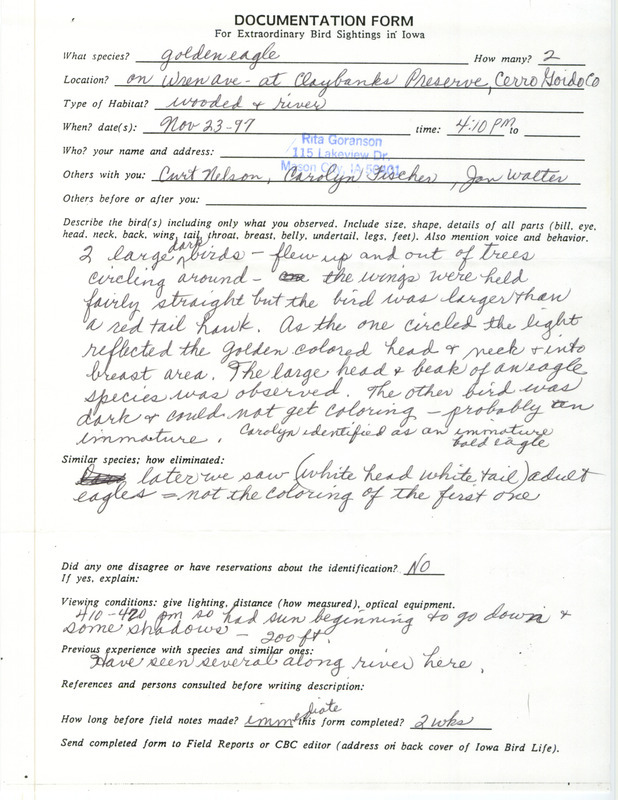 DOCUMENTATION FORM
For Extraordinary Bird Sightings in Iowa
What species? golden eagle How many? 2
Location? on Wren Ave - at Claybanks Preserve, Cerro Gordo Co
Type of Habitat? wooded & river
When? date(s): Nov 23-97 time: 4:10 pm to
Rita Goranson
Who? your name and address: 115 Lakeview Dr.
Mason City, IA 50401
Others with you: Curt Nelson, Carolyn Fischer, Jan Walter
Others before or after you:
Describe the bird(s) including only what you observed. Include size, shape, details of all parts (bill, eye,
head, neck, back, wing, tail, throat, breast, belly, undertail, legs, feet). Also mention voice and behavior.
2 large dark birds - flew up and out of trees
circling around - the wings were held
fairly straight but the bird was larger than
a red tail hawk. As the one circled the light
reflected the golden colored head & neck & into
breast area. The large head & beak of an eagle
species was observed. The other bird was
dark & could not get coloring - probably an
immature. Carolyn identified as an immature
bald eagle
Similar species; how eliminated:
later we saw (white head white tail) adult
eagles = not the coloring of the first one
Did any one disagree or have reservations about the identification? No
If yes, explain:
Viewing conditions: give lighting, distance (how measured), optical equipment.
410-420 pm so had sun beginning to go down &
some shadows - 200 ft.
Previous experience with species and similar ones:
Have seen several along river here.
References and persons consulted before writing description:
How long before field notes made? immediate this form completed? 2 wks
Send completed form to Field Reports or CBC editor (address on back cover of Iowa Bird Life).